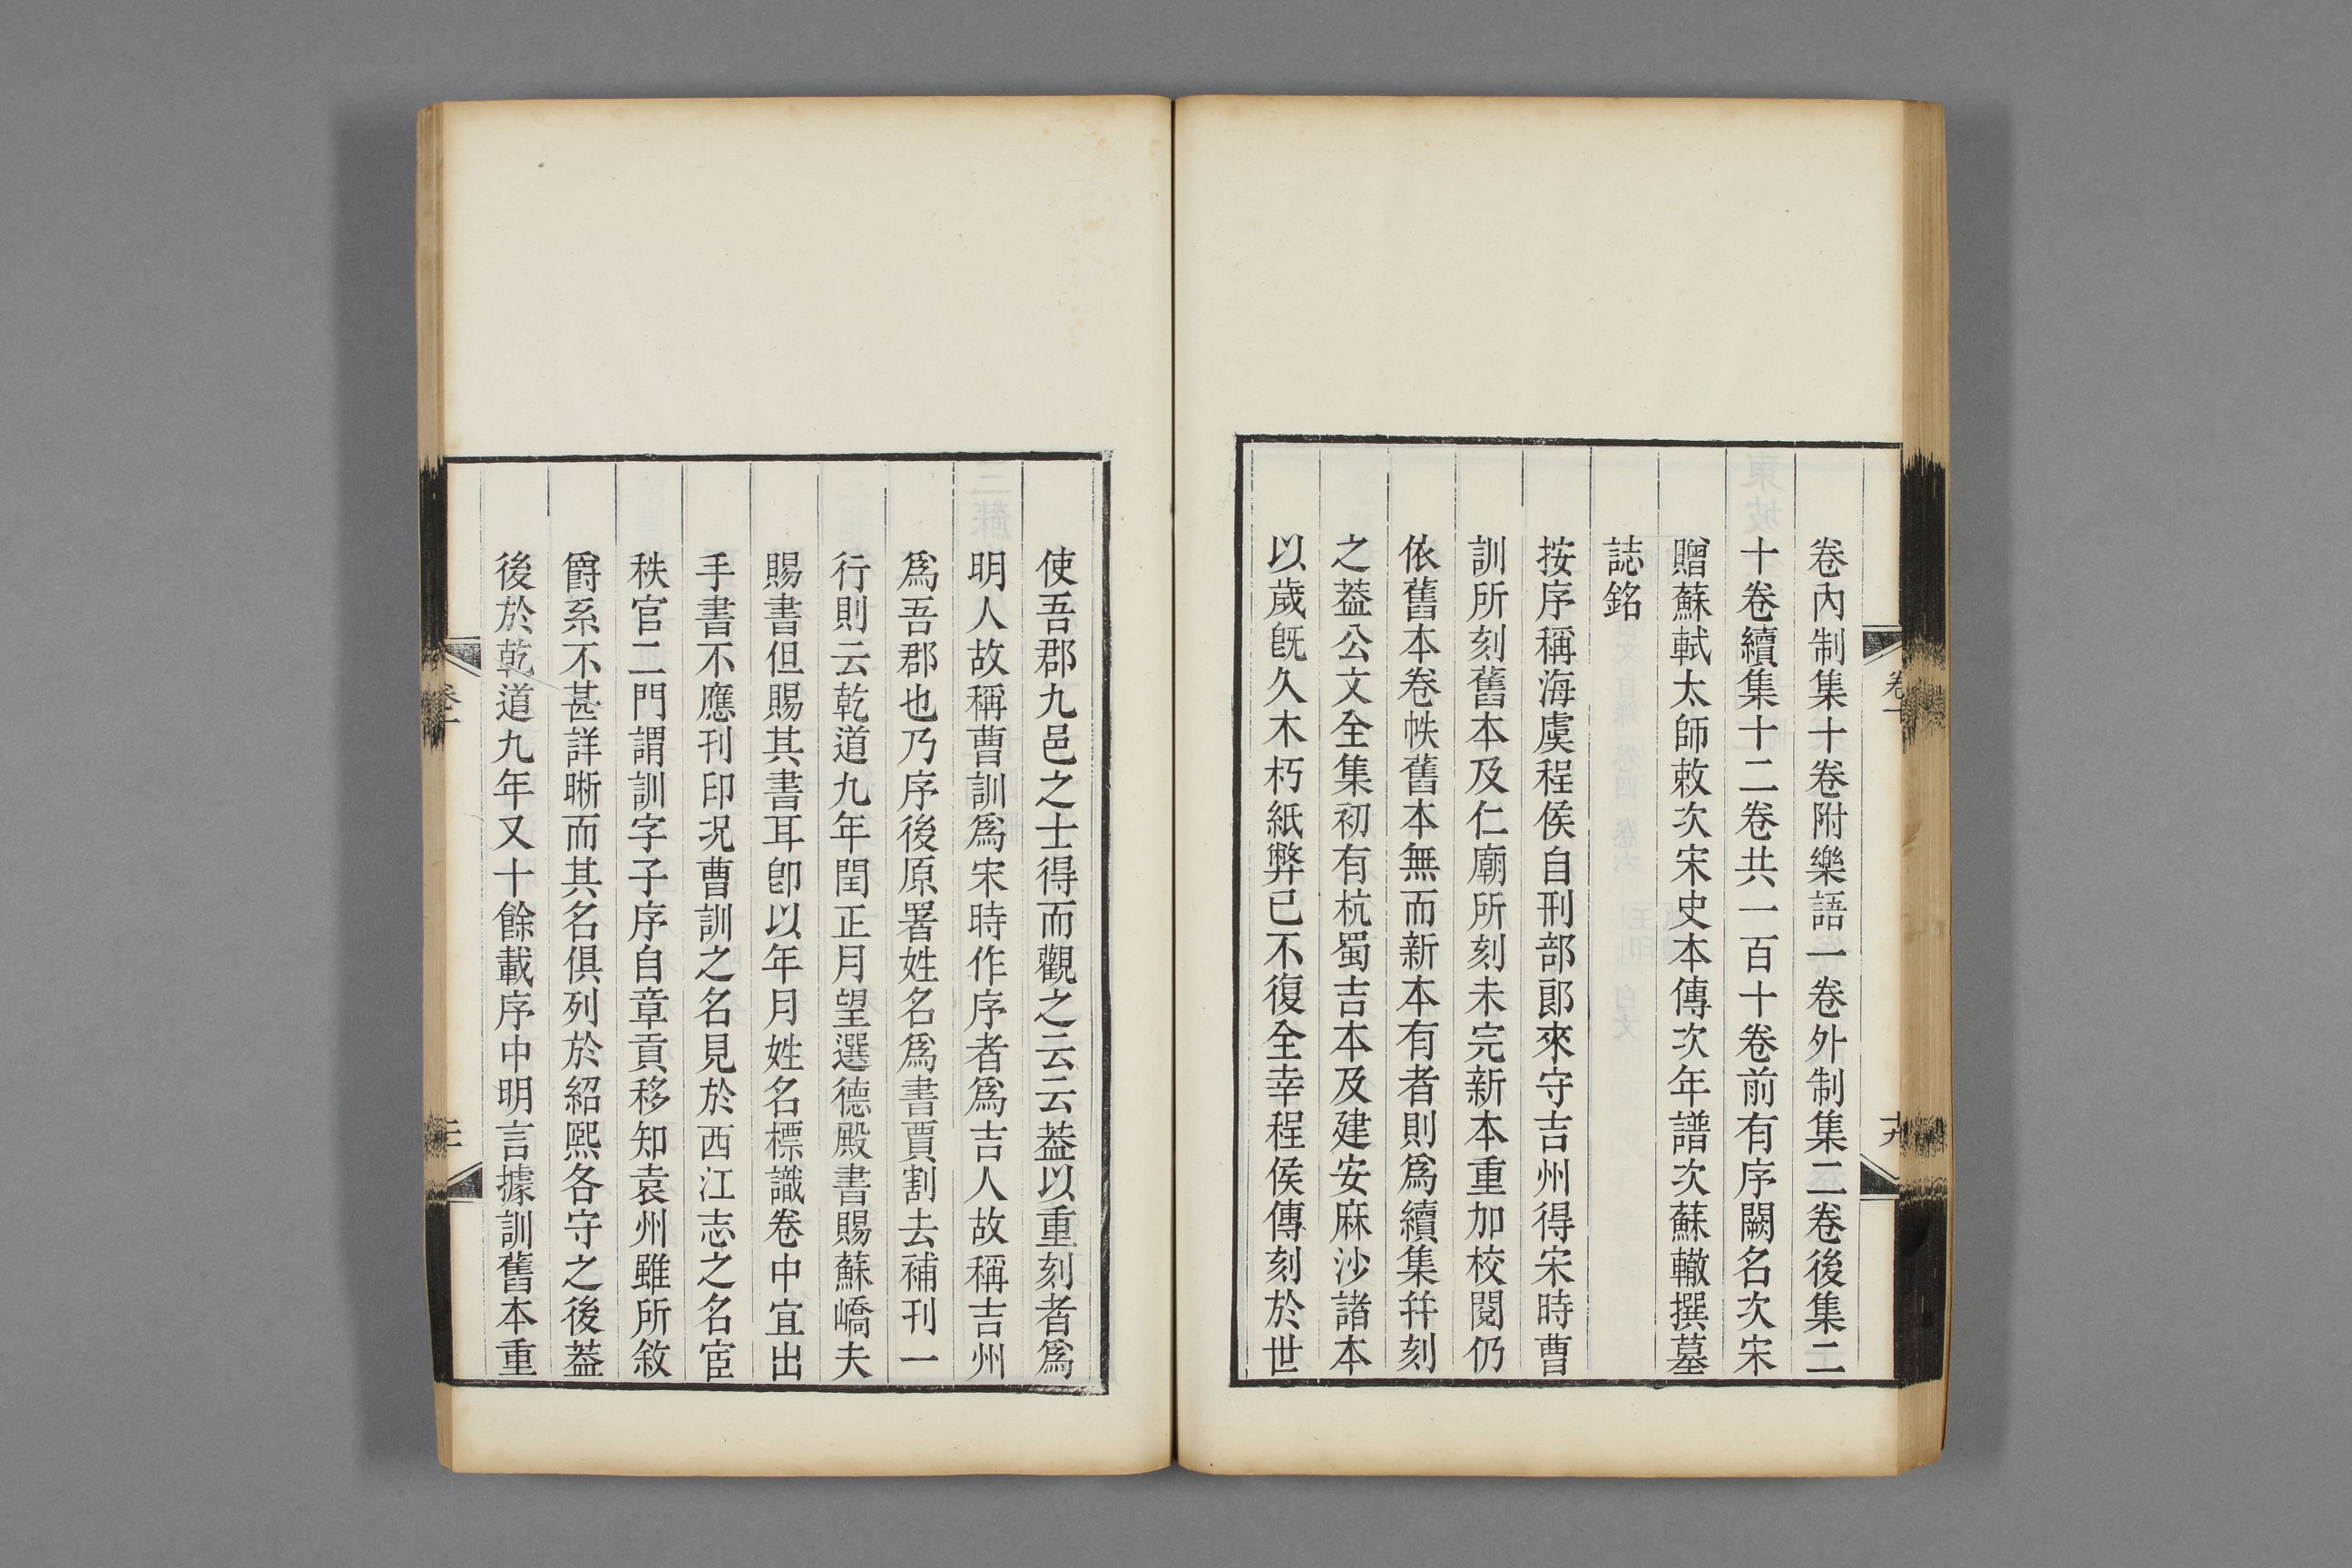 卷內制集十卷附樂語一卷外制集二卷後集二
十卷續集十二卷共一百十卷前有序闕名次宋
贈蘇軾太師敕次宋史本傳次年譜次蘇轍撰墓
誌銘
按序稱海虞程侯自刑部郎來守吉州得宋時曹
訓所刻舊本及仁廟所刻未完新本重加校閱仍
依舊本卷帙舊本無而新本有者則爲續集幷刻
之葢公文全集初有杭蜀吉本及建安麻沙諸本
以歲旣久木朽紙弊已不復全幸程侯傳刻於世
使吾郡九邑之士得而觀之云云葢以重刻者爲
明人故稱曹訓爲宋時作序者爲吉人故稱吉州
爲吾郡也乃序後原署姓名爲書賈割去補刊一
行則云乾道九年閏正月望選德殿書賜蘇嶠夫
賜書但賜其書耳卽以年月姓名標識卷中宜出
手書不應刊印况曹訓之名見於西江志之名宦
秩官二門謂訓字子序自章貢移知袁州雖所敘
爵系不甚詳晰而其名俱列於紹熙各守之後葢
後於乾道九年又十餘載序中明言據訓舊本重
卷一
十九
卷一